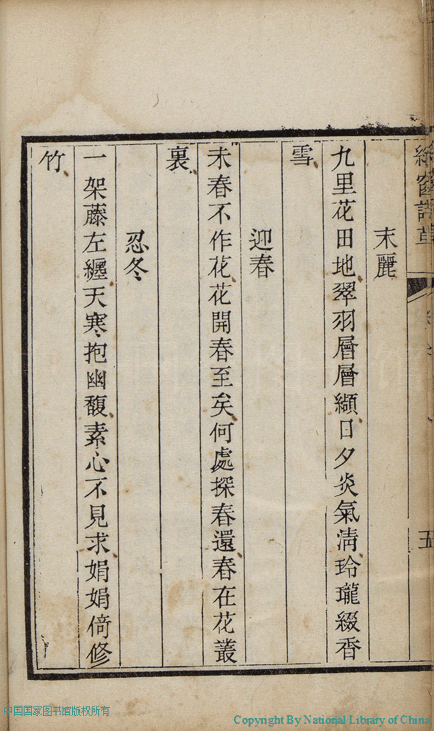 末麗
九里花田地翠羽層層纈日夕炎氣清玲瓏綴香
雪
迎春
未春不作花花開春至矣何處探春還春在花叢
裏
忍冬
一架藤左纏天寒抱幽馥素心不見求娟娟倚修
竹
五
中国国家图书馆版权所有
Copyright By National Library of China